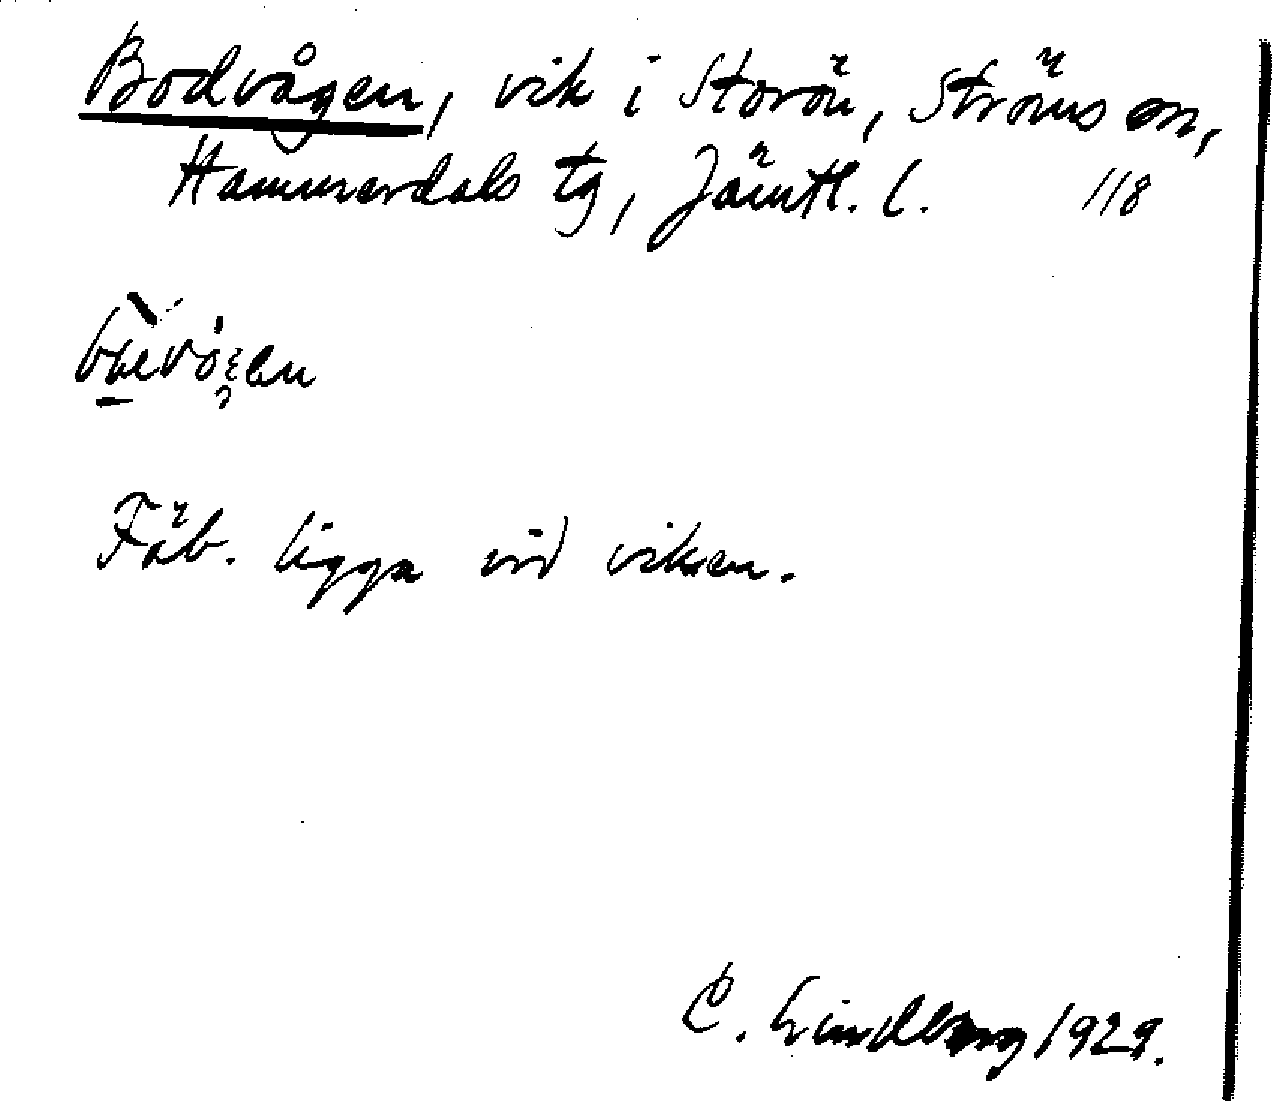 Bodvågen, vik i Storön, Ströms sn,
Hammerdals tg, Jämtl. l. 118
Fäb. ligga vid viken.
C. Lindberg 1929.